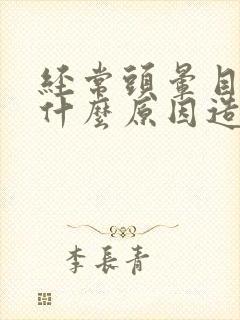 經常頭暈目
什麼原因造
李長青